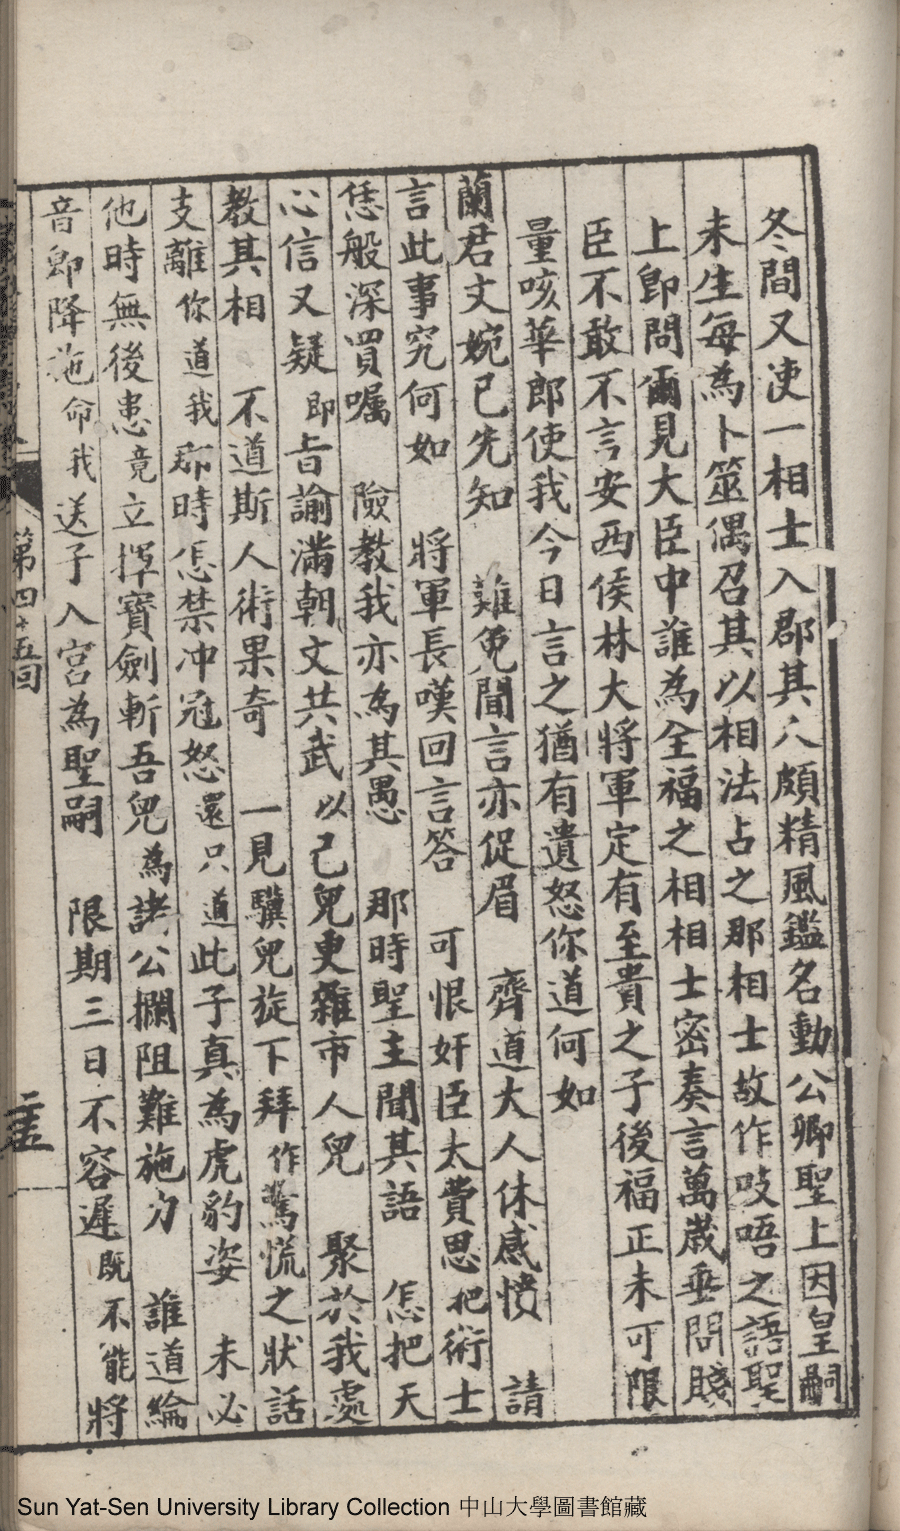 冬間又使一相士入郡其人頗精風鑑名動公卿聖上因皇嗣
未生每為卜筮偶召其以相法占之那相士故作吱唔之語聖
上卽問爾見大臣中誰為全福之相相士密奏言萬歲垂問賤
臣不敢不言安西侯林大將軍定有至貴之子後福正未可限
量咳華郎使我今日言之猶有遺怒你道何如
蘭君文婉已先知 難免聞言亦促眉 齊道大人休感憤 請
言此事究何如 將軍長嘆回言答 可恨奸臣太費思把術士
恁般深買囑 險教我亦為其愚 那時聖主聞其語 怎把天
心信又疑卽旨諭滿朝文共武以己兒更雜市人兒 聚於我處
教其相 不道斯人術果奇 一見驥兒旋下拜作驚慌之狀話
支離你道我那時怎禁冲冠怒還只道此子真為虎豹姿 未必
他時無後患竟立揮寶劍斬吾兒為諸公攔阻難施力 誰道綸
音卽降施命我送子入宮為聖嗣 限期三日不容遲既不能將
第四十五回
Sun Yat-Sen University Library Collection 中山大學圖書館藏